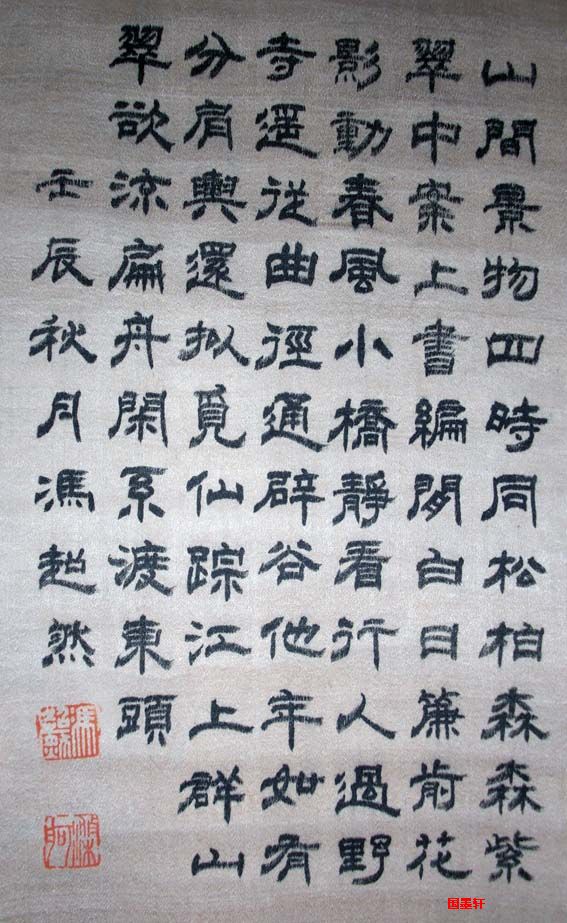 山間景物四時同松柏森森紫
翠中案上書編閒白日簾前花
影動春風小橋靜看行人過野
寺遥從曲徑通辟谷他年如有
分肩輿還拟覓仙踪江上群山
翠欲流扁舟閑系渡東頭
壬辰秋月馮超然
国墨轩